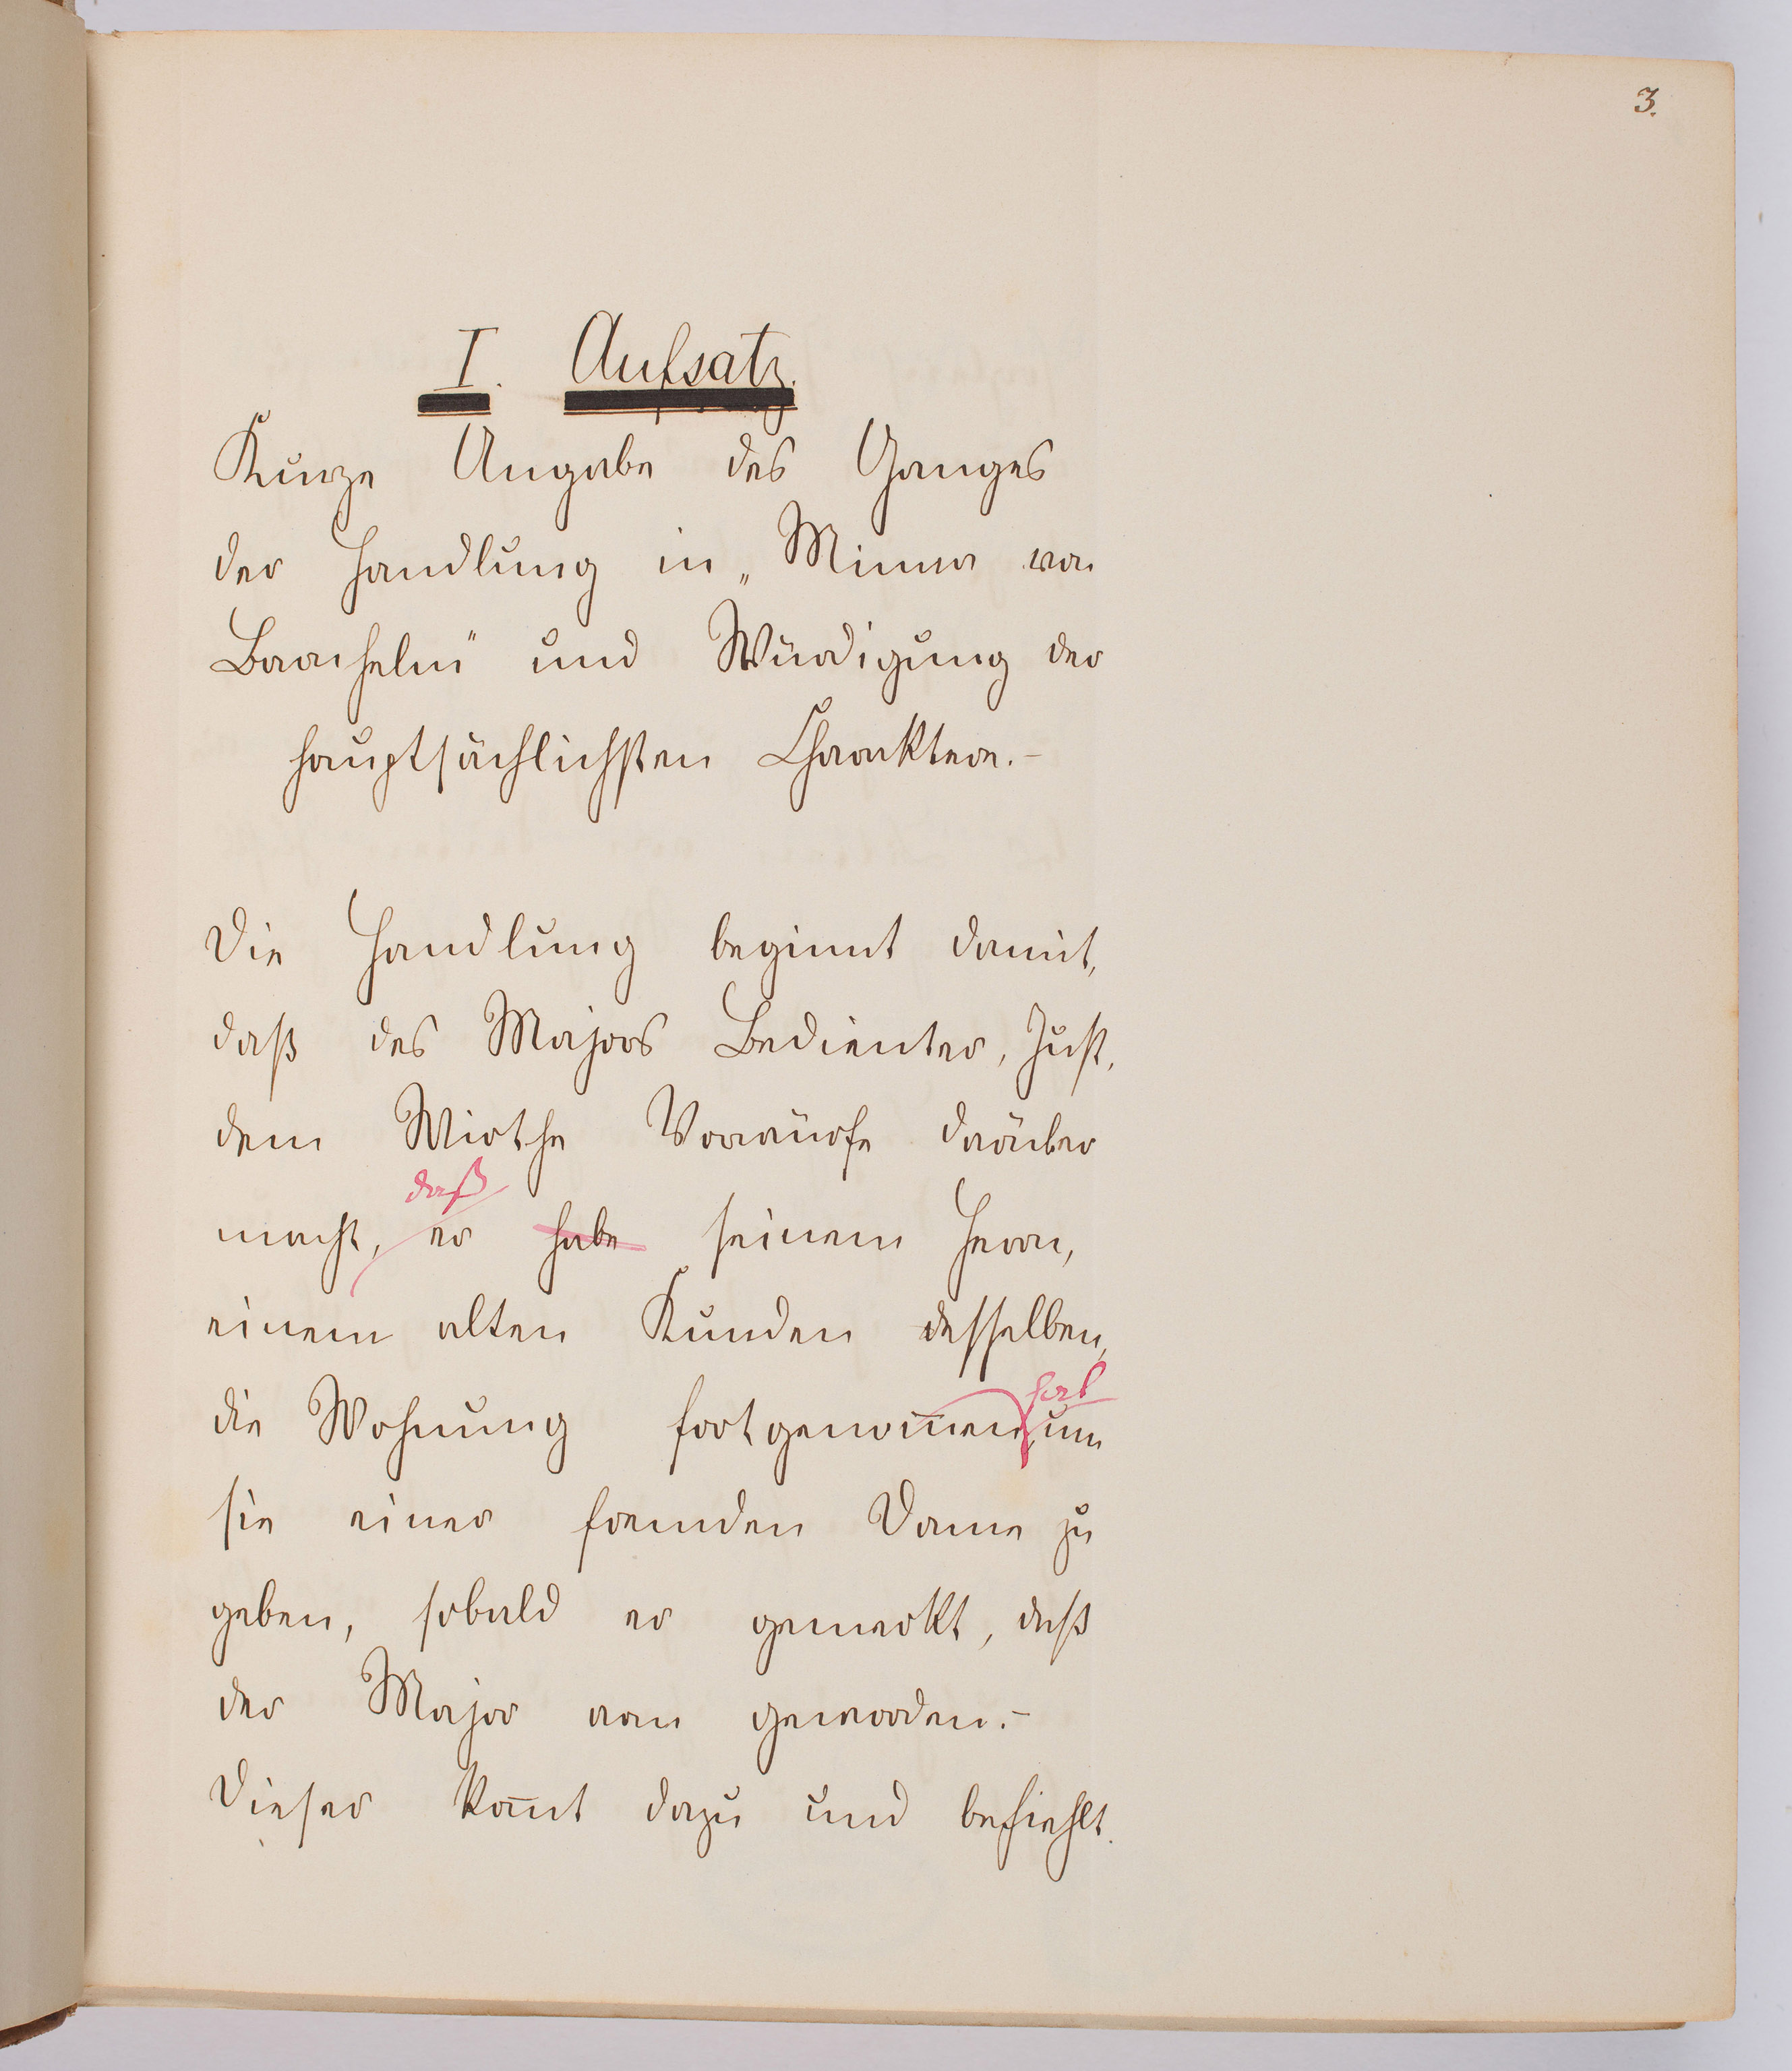 3.
I. Aufsatz.
Kurze Angabe des Ganges
der Handlung in „Minna von
Barnhelm" und Würdigung der
hauptsächlichsten Charaktere.-
Die Handlung beginnt damit,
daß des Majors Bedienter, Just,
dem Wirthe Vorwürfe darüber
daß
macht, er habe seinem Herrn,
einem alten Kunden desselben,
hat
die Wohnung fortgenom̅en, um
sie einer fremden Dame zu
geben, sobald er gemerkt, daß
der Major arm geworden.-
Dieser kom̅t dazu und befiehlt